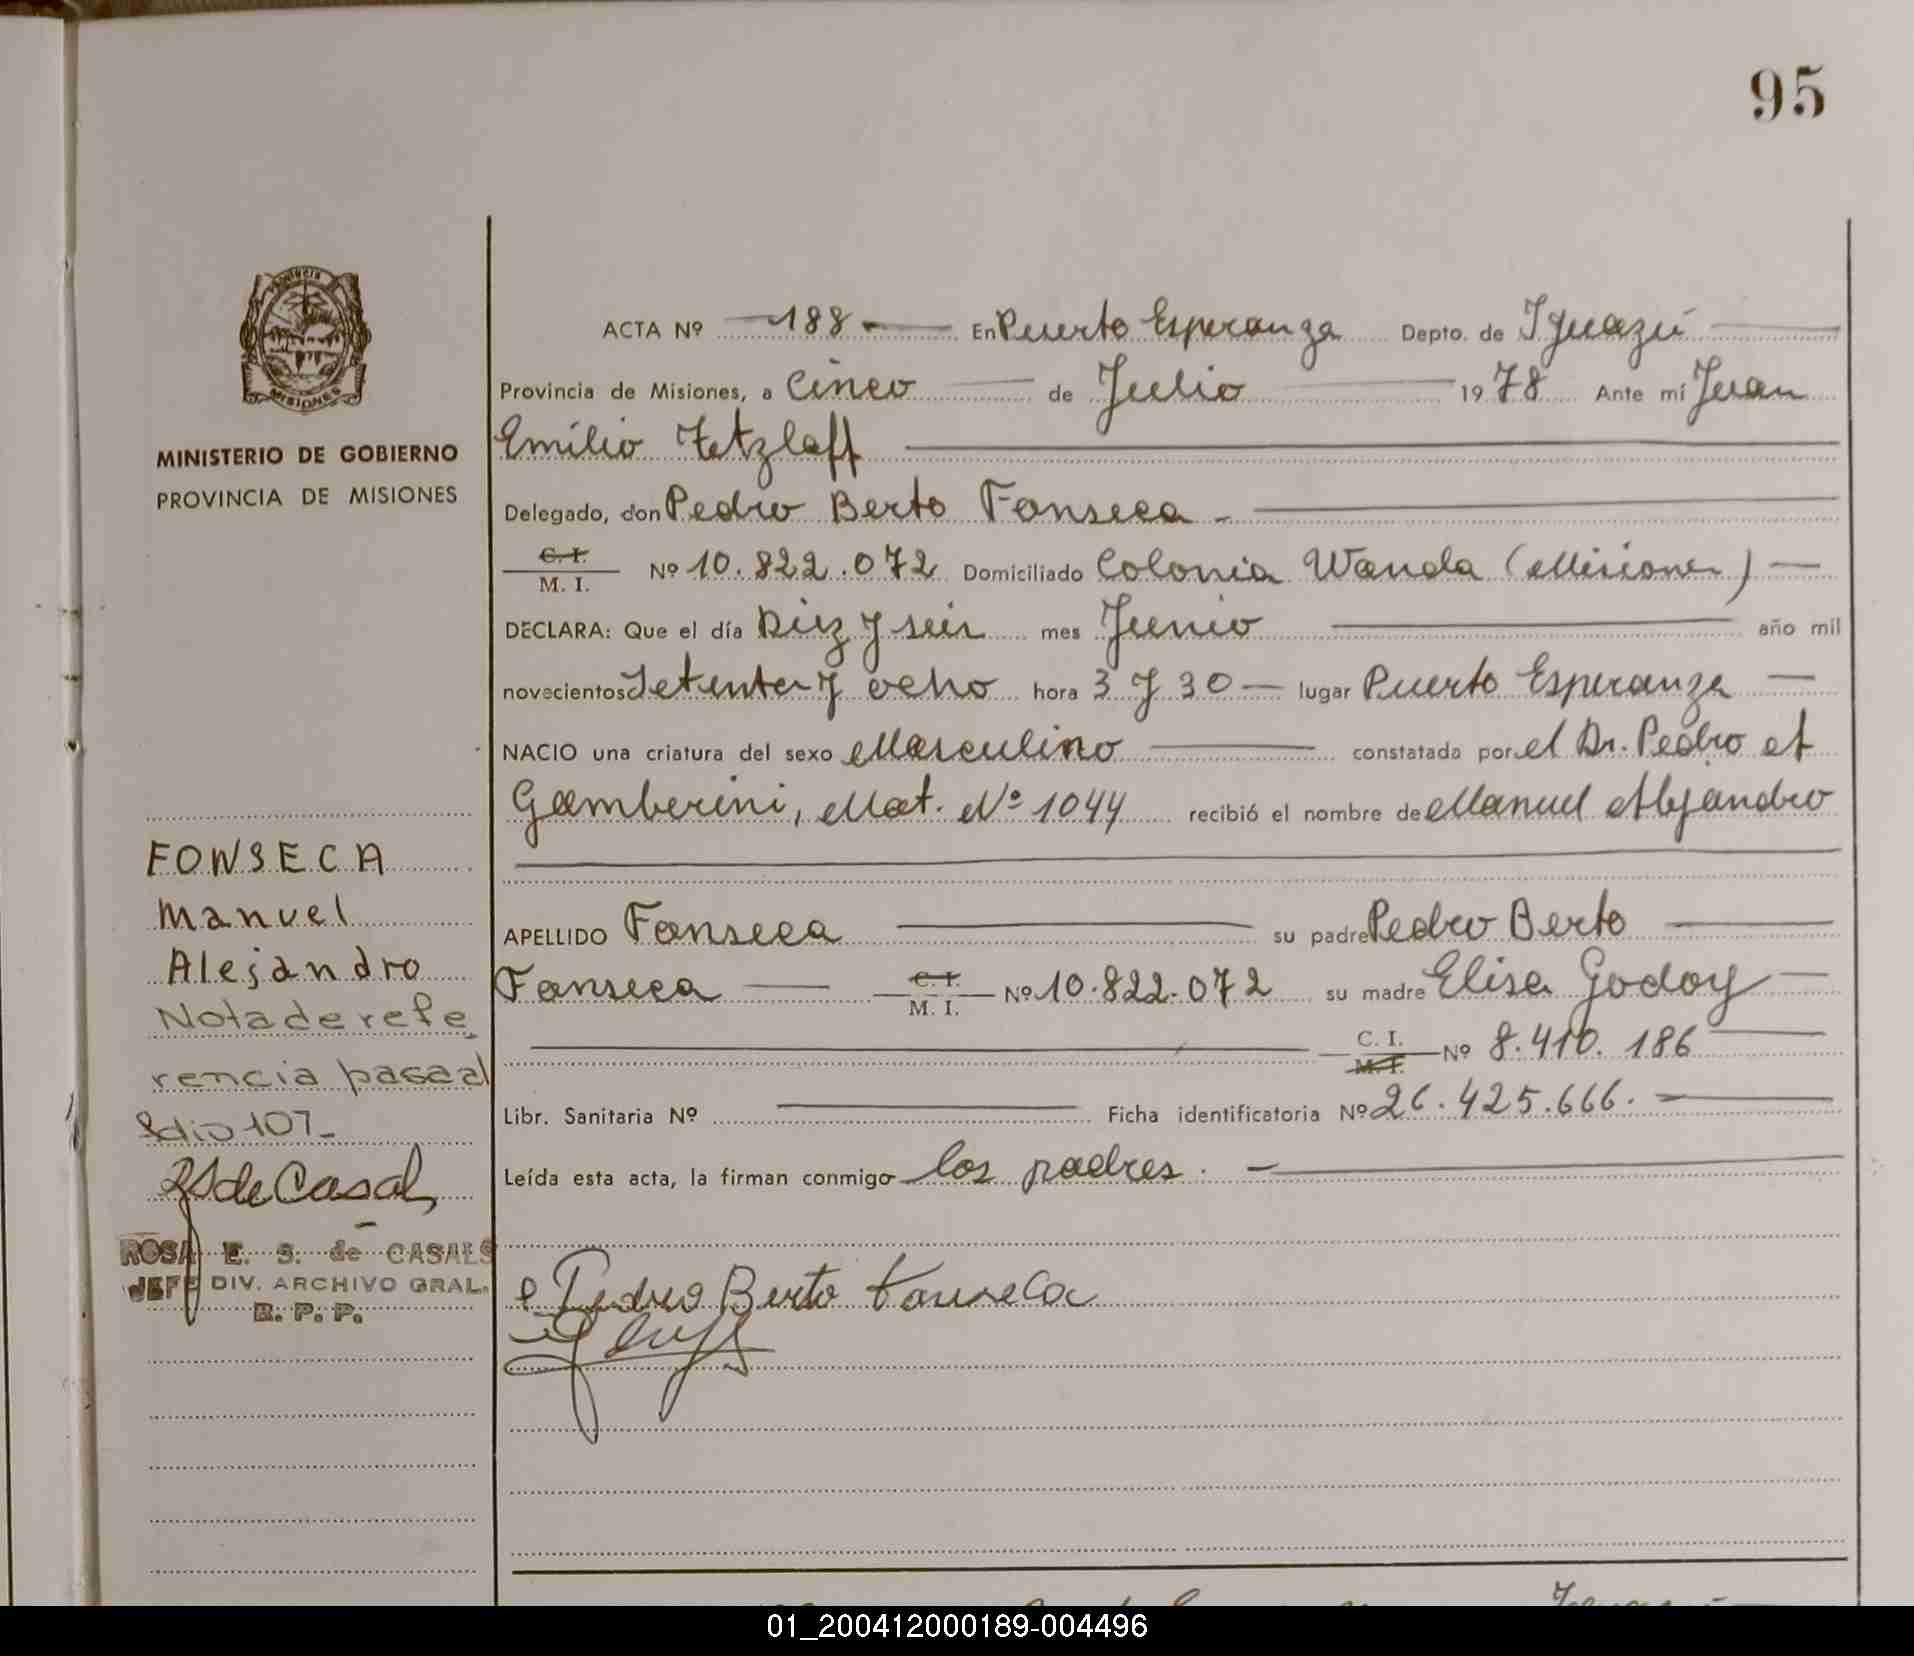 95
ACTA Nº 188 En Puerto Esperanza Depto. de Iguazú
Provincia de Misiones, a Cinco de Julio 1978 Ante mí Juan
Emilio Tetzlaff
Delegado, don Pedro Berto Fonseca
C. I.
M. I. Nº 10.822.072 Domiciliado Colonia Wanda (Misiones)
DECLARA: Que el día Diez y seis mes Junio año mil
novecientos Setenta y ocho hora 3 y 30 lugar Puerto Esperanza
NACIO una criatura del sexo Masculino constatada por el Dr. Pedro A
Gamberini, Mat. Nº 1044 recibió el nombre de Manuel Alejandro
APELLIDO Fonseca su padre Pedro Berto
Fonseca C. I. M. I. Nº 10.822.072 su madre Elisa Godoy
C. I. M. I. Nº 8.410.186
Libr. Sanitaria Nº Ficha identificatoria Nº 26.425.666.
Leída esta acta, la firman conmigo los padres.
Pedro Berto Fonseca
PROVINCIA
MISIONES
MINISTERIO DE GOBIERNO
PROVINCIA DE MISIONES
FONSECA
Manuel
Alejandro
Nota de refe
rencia pasa al
folio 107
RSdeCasals
ROSA E. S. de CASALS
JEFE DIV. ARCHIVO GRAL.
R. P. P.
01_200412000189-004496